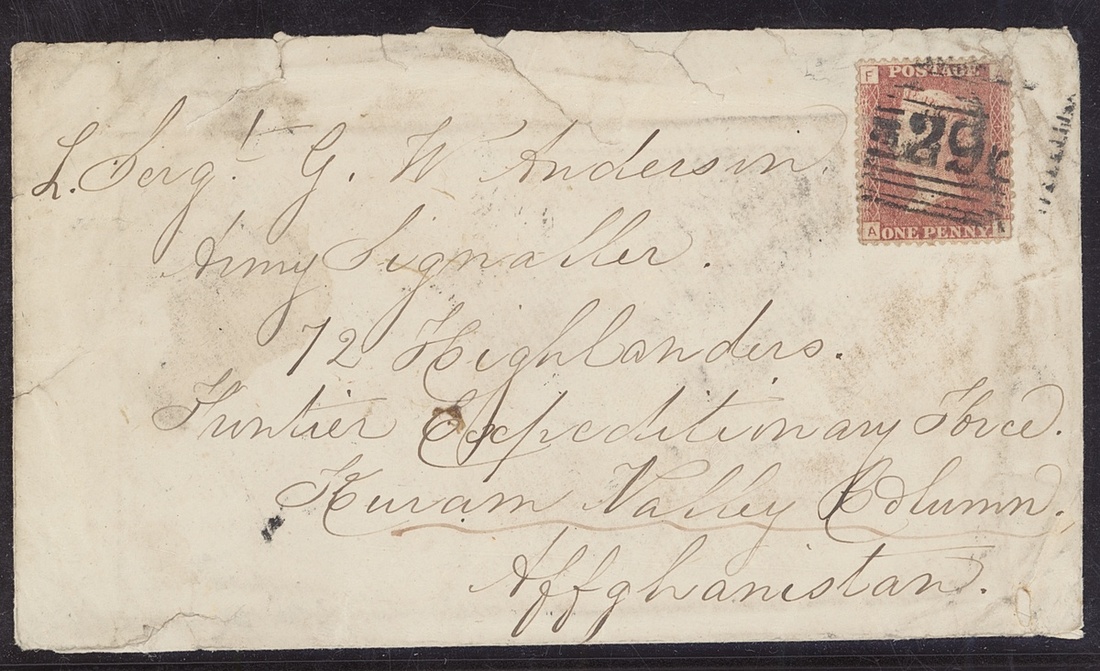 F POSTAGE
129
A ONE PENNY
L. Sergt. G. W Anderson
Army Signaller.
72 Highlanders.
Frontier Expeditionary Force.
Kuram Valley Column.
Affghanistan.